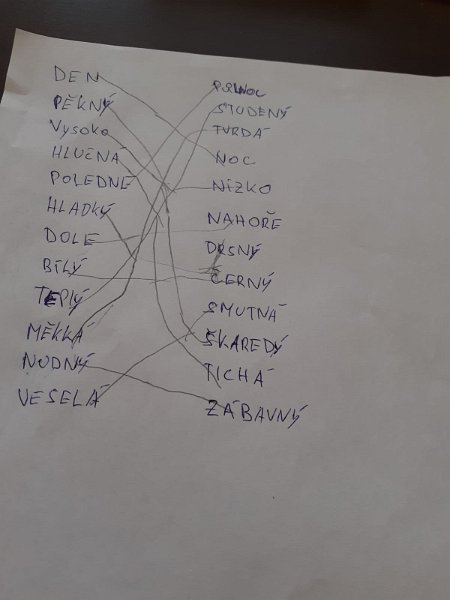 DEN
PĚKNÝ
Vysoko
HLUČNÁ
POLEDNE
HLADKÝ
DOLE
BÍLÝ
TEPLÝ
MĚKKÁ
NUDNÝ
VESELÁ
PŮLNOC
STUDENÝ
TVRDÁ
NOC
NÍZKO
NAHOŘE
DRSNÝ
ČERNÝ
SMUTNÁ
ŠKAREDÝ
TICHÁ
ZÁBAVNÝ